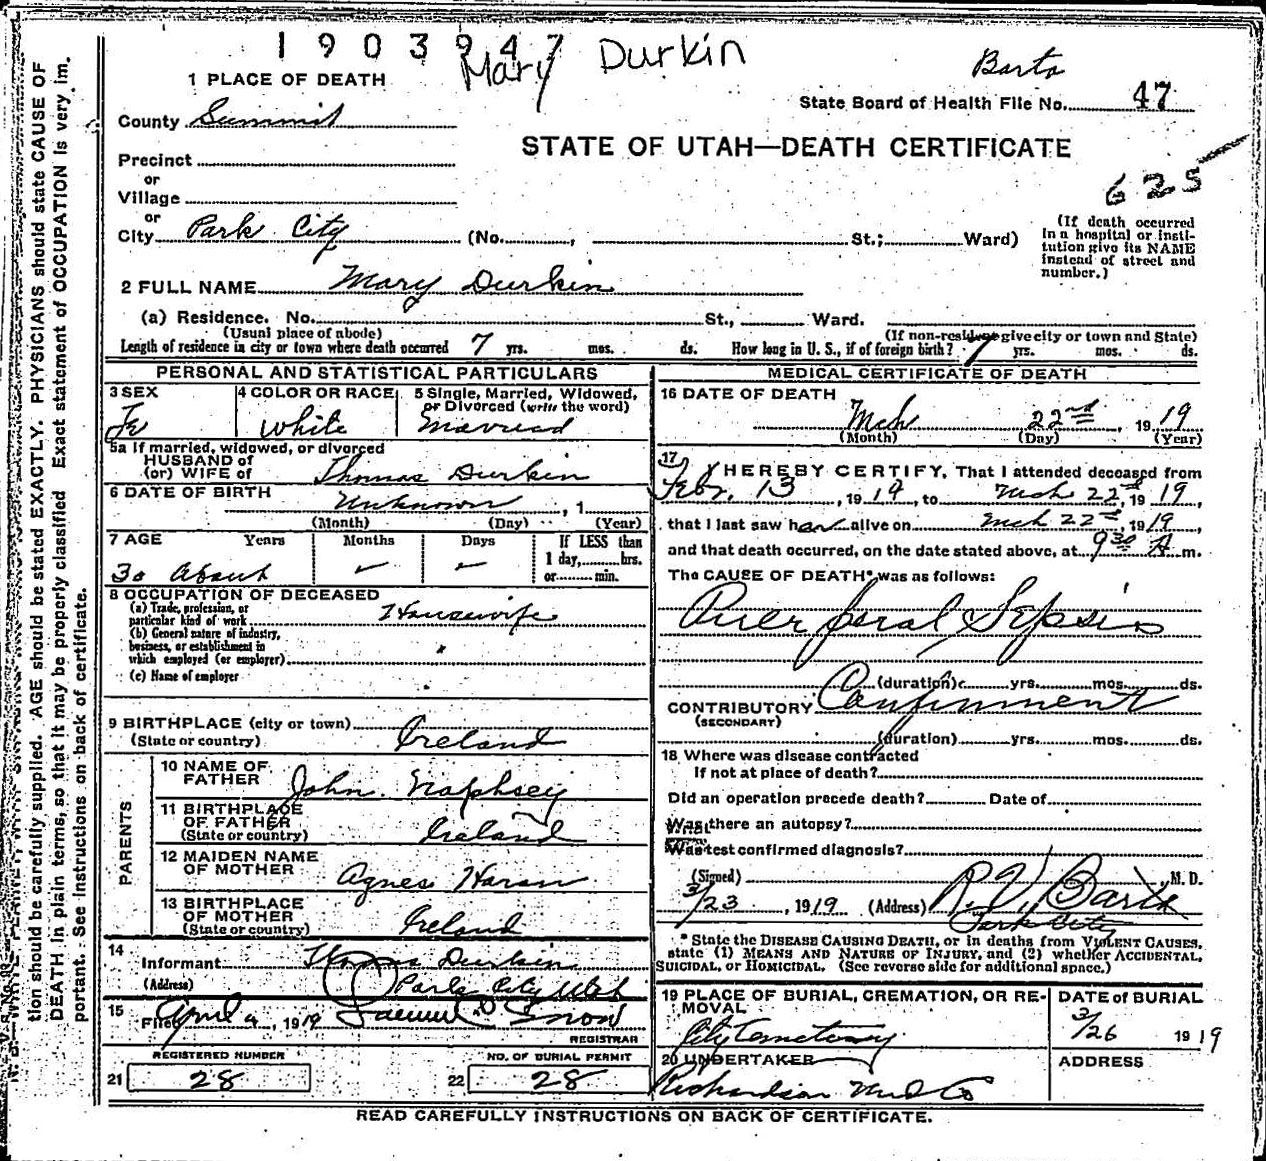 1903947
Mary Durkin
Barta
1 PLACE OF DEATH
State Board of Health File No. 47
County Summit
STATE OF UTAH—DEATH CERTIFICATE
Precinct
or
625
Village
or
City Park City (No. , St.; Ward)
(If death occurred
in a hospital or insti-
tution give its NAME
instead of street and
number.)
2 FULL NAME Mary Durkin
(a) Residence. No. St., Ward.
(Usual place of abode) (If non-resident give city or town and State)
Length of residence in city or town where death occurred 7 yrs. mos. ds. How long in U. S., if of foreign birth? 7 yrs. mos. ds.
PERSONAL AND STATISTICAL PARTICULARS
3 SEX 4 COLOR OR RACE 5 Single, Married, Widowed,
or Divorced (write the word)
Fe White Married
5a If married, widowed, or divorced
HUSBAND of
(or) WIFE of Thomas Durkin
6 DATE OF BIRTH Unknown , 1
(Month) (Day) (Year)
7 AGE Years Months Days If LESS than
1 day, hrs.
30 About or min.
8 OCCUPATION OF DECEASED
(a) Trade, profession, or
particular kind of work Housewife
(b) General nature of industry,
business, or establishment in
which employed (or employer)
(c) Name of employer
9 BIRTHPLACE (city or town)
(State or country) Ireland
PARENTS
10 NAME OF
FATHER John
11 BIRTHPLACE
OF FATHER
(State or country) Ireland
12 MAIDEN NAME
OF MOTHER Agnes Haran
13 BIRTHPLACE
OF MOTHER
(State or country) Ireland
14
Informant Thomas Durkin
(Address) Park City Utah
15
Filed April 4, 1919 Samuel Snow
REGISTRAR
REGISTERED NUMBER NO. OF BURIAL PERMIT
21 28 22 28
MEDICAL CERTIFICATE OF DEATH
16 DATE OF DEATH
Mch 22nd 1919
(Month) (Day) (Year)
17
I HEREBY CERTIFY, That I attended deceased from
Febr. 13, 1919, to Mch 22nd, 1919,
that I last saw her alive on Mch 22nd, 1919,
and that death occurred, on the date stated above, at 9 30 A m.
The CAUSE OF DEATH* was as follows:
Puerperal Sepsis
(duration) yrs. mos. ds.
CONTRIBUTORY Confinement
(SECONDARY)
(duration) yrs. mos. ds.
18 Where was disease contracted
If not at place of death?
Did an operation precede death? Date of
Was there an autopsy?
What test confirmed diagnosis?
(Signed) , M. D.
3/23, 1919 (Address) Park City
* State the DISEASE CAUSING DEATH, or in deaths from VIOLENT CAUSES,
state (1) MEANS AND NATURE OF INJURY, and (2) whether ACCIDENTAL,
SUICIDAL, OR HOMICIDAL. (See reverse side for additional space.)
19 PLACE OF BURIAL, CREMATION, OR RE- DATE of BURIAL
MOVAL
City Cemetery 3/26 1919
20 UNDERTAKER ADDRESS
Richardson
READ CAREFULLY INSTRUCTIONS ON BACK OF CERTIFICATE.
tion should be carefully supplied. AGE should be stated EXACTLY. PHYSICIANS should state CAUSE OF
DEATH in plain terms, so that it may be properly classified Exact statement of OCCUPATION is very im-
portant. See instructions on back of certificate.